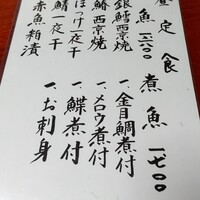 昼定食
焼魚 一、二六〇〇
銀鱈西京焼
鰆西京焼
ほっけ一夜干
鯖一夜干
赤魚粕漬
煮魚 一、七〇〇
一、金目鯛煮付
一、メロウ煮付
一、鰈煮付
一、お刺身